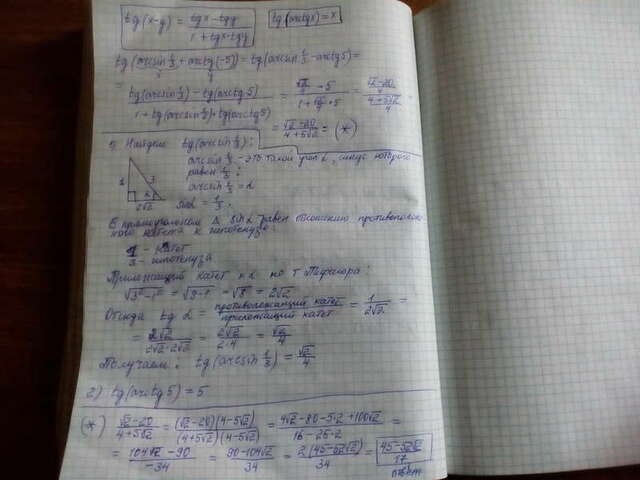 tg(x-y) = (tgx - tgy)/(1 + tgx·tgy)   tg(arctgx) = x
tg(arcsin 1/3 + arctg(-5)) = tg(arcsin 1/3 - arctg5) =
= (tg(arcsin 1/3) - tg(arctg 5))/(1 + tg(arcsin 1/3)·tg(arctg5)) = (√2/4 - 5)/(1 + √2/4 · 5) = ((√2-20)/4)/((4+5√2)/4) =
= (√2-20)/(4+5√2) = (*)
1) Найдем tg(arcsin 1/3):
arcsin 1/3 - это такой угол α, синус которого
равен 1/3:
arcsin 1/3 = α
sinα = 1/3.
1 3 α 2√2
В прямоугольном Δ sinα равен отношению противополож-
ного катета к гипотенузе
1 - катет
3 - гипотенуза
Прилежащий катет к α по т Пифагора:
√(3²-1²) = √(9-1) = √8 = 2√2
Отсюда tg α = противолежащий катет/прилежащий катет = 1/(2√2) =
= 2√2/(2√2·2√2) = 2√2/(2·4) = √2/4
Получаем: tg(arcsin 1/3) = √2/4
2) tg(arctg5) = 5
(*) (√2-20)/(4+5√2) = (√2-20)(4-5√2)/((4+5√2)(4-5√2)) = (4√2-80-5·2+100√2)/(16-25·2) =
= (104√2-90)/(-34) = (90-104√2)/34 = 2(45-52√2)/34 = (45-52√2)/17
ответ